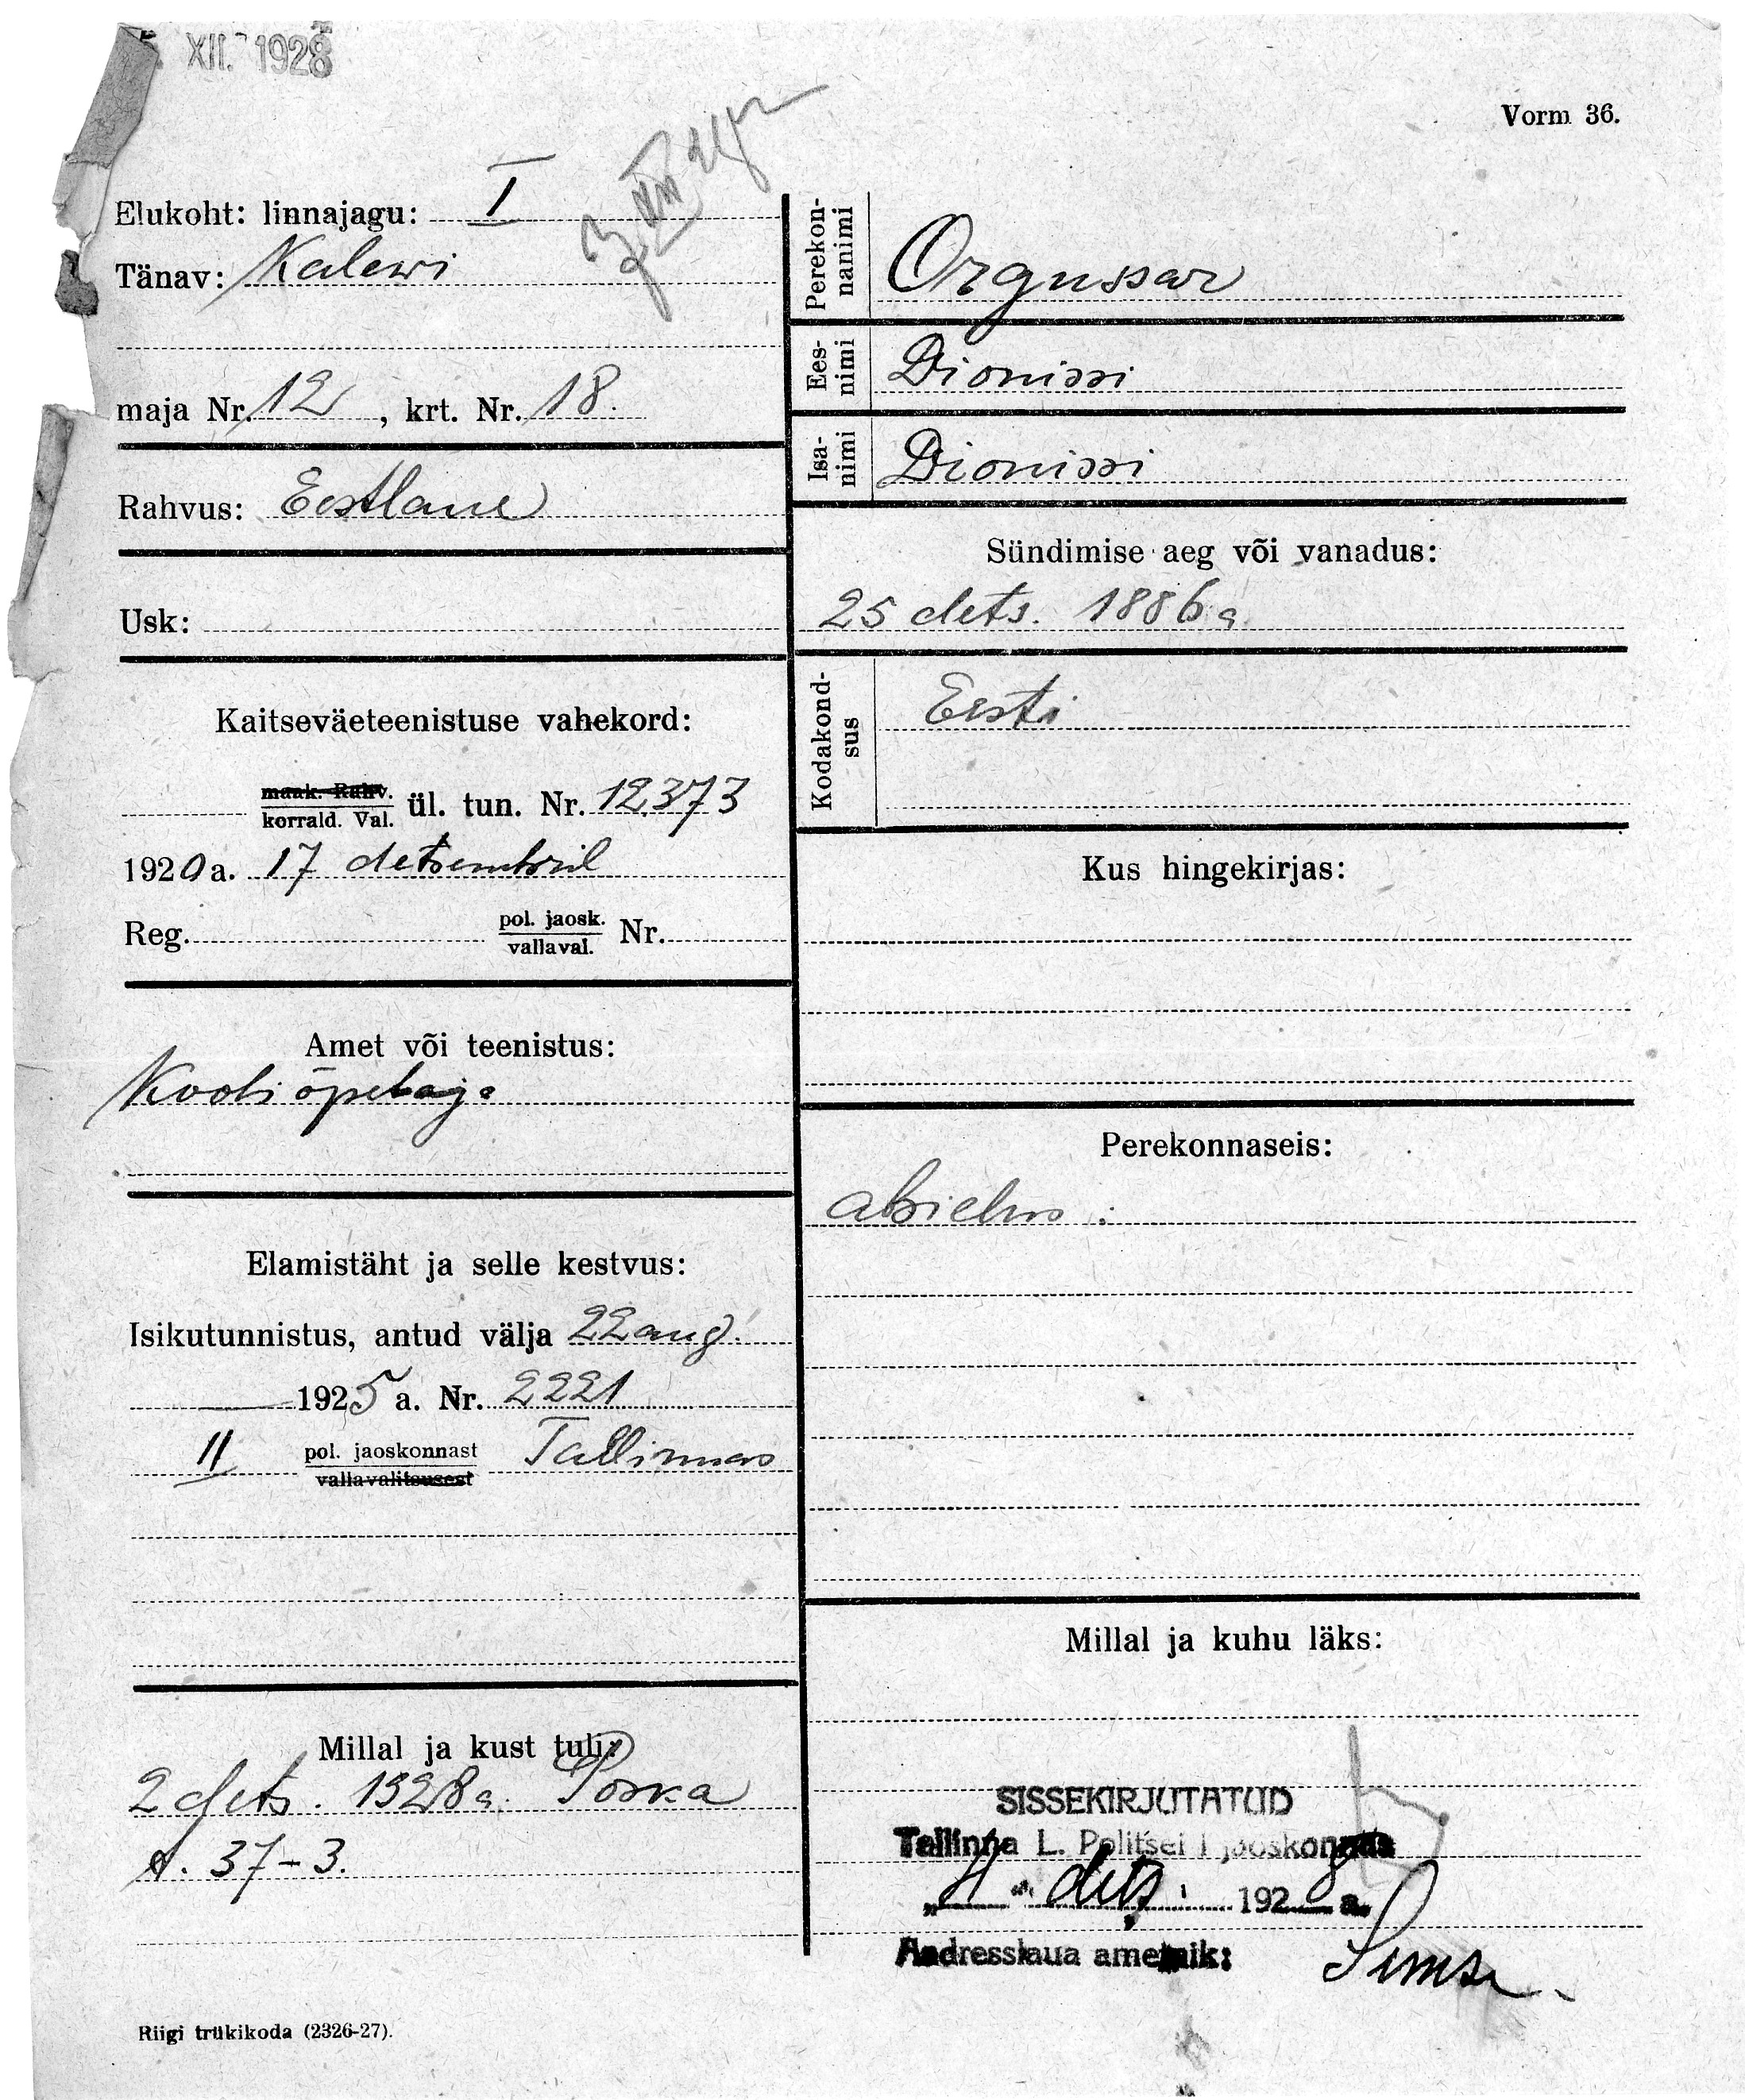 XII. 1928
Vorm 36.
Elukoht: linnajagu: I
Tänav: Kalewi
maja Nr. 12, krt. Nr. 18.
Rahvus: Eestlane
Usk:
Kaitseväeteenistuse vahekord:
maak. Rahv.
korrald. Val. ül. tun. Nr. 12373
1920 a. 17 detsembril
Reg. pol. jaosk. Nr.
vallaval.
Amet või teenistus:
Kooliõpetaja
Elamistäht ja selle kestvus:
Isikutunnistus, antud välja 22 aug.
1925 a. Nr. 2221
II pol. jaoskonnast Tallinnas
vallavalitsusest
Millal ja kust tuli:
2 dets. 1928 a. Poska
t. 37-3.
Riigi trükikoda (2326-27).
Perekon-
nanimi
Orgussar
Ees-
nimi
Dionissi
Isa-
nimi
Dionissi
Sündimise aeg või vanadus:
25 dets. 1886 a
Kodakond-
sus
Eesti
Kus hingekirjas:
Perekonnaseis:
abielus
Millal ja kuhu läks:
SISSEKIRJUTATUD
Tallinna L. Politsei I jaoskonnas
"4" dets. 1928 a.
Aadresslaua ametnik: